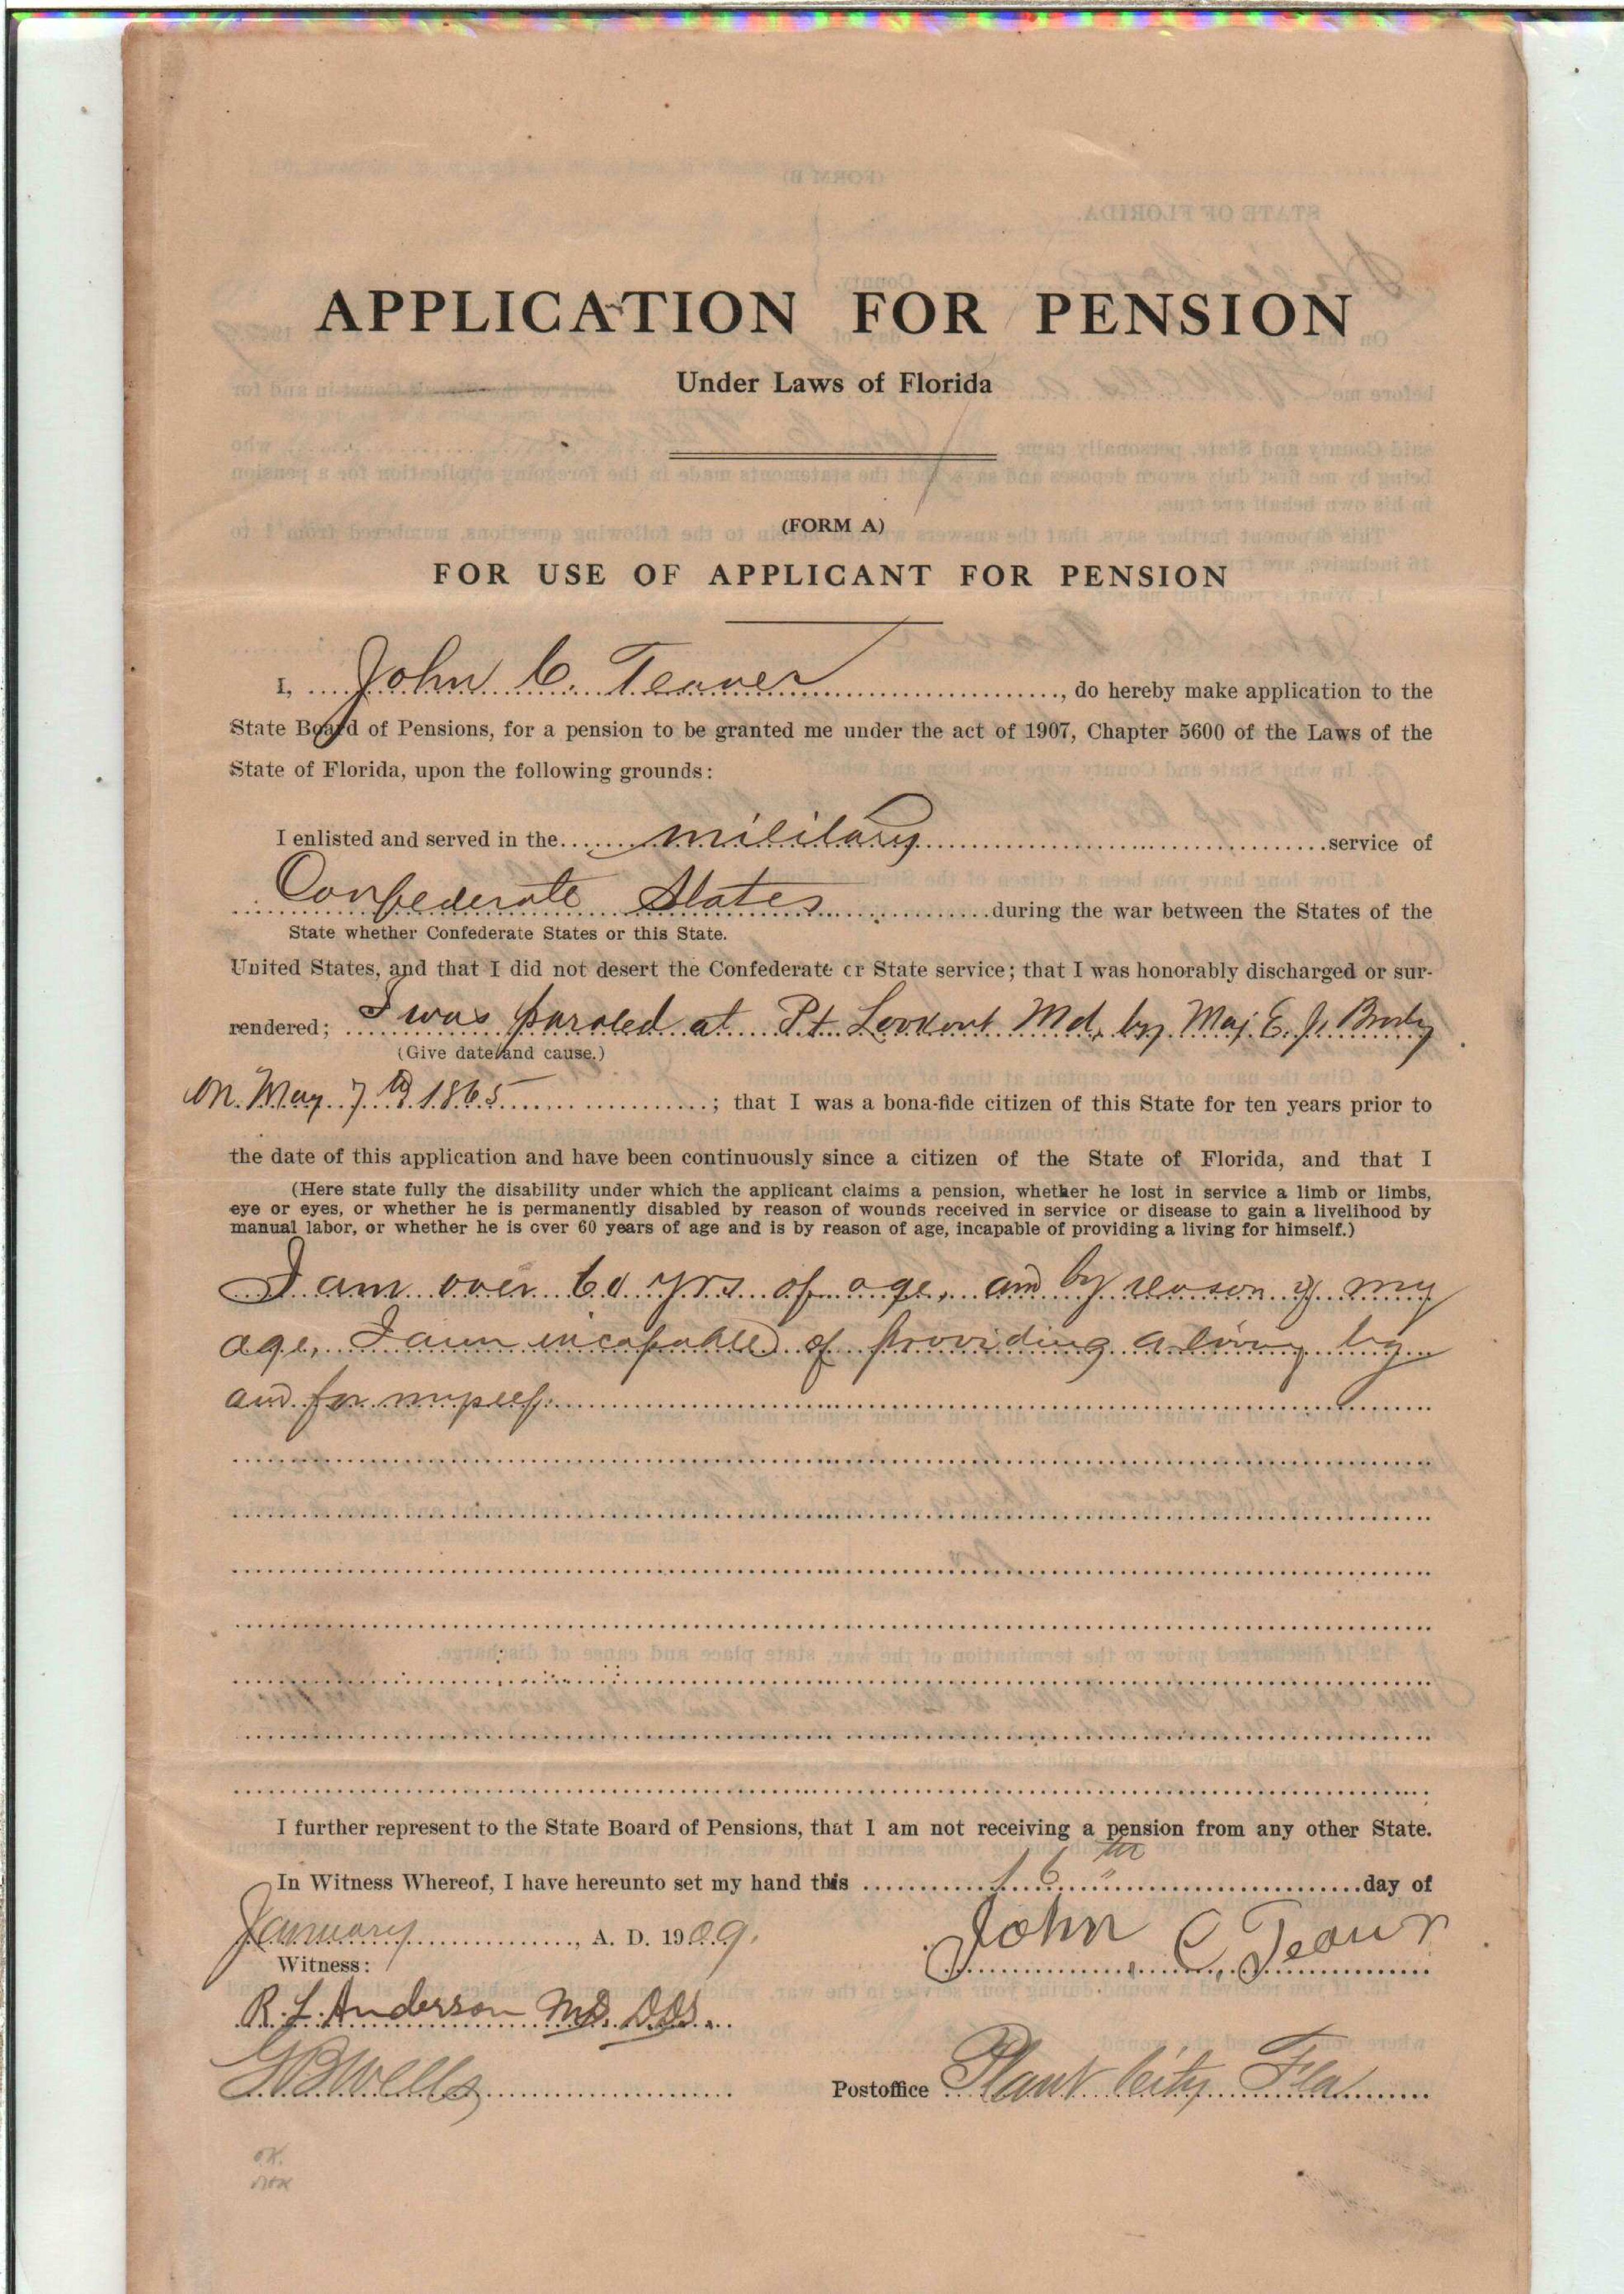 APPLICATION FOR PENSION
Under Laws of Florida
(FORM A)
FOR USE OF APPLICANT FOR PENSION
I, John C. Teaver, do hereby make application to the
State Board of Pensions, for a pension to be granted me under the act of 1907, Chapter 5600 of the Laws of the
State of Florida, upon the following grounds:
I enlisted and served in the military service of
Confederate States during the war between the States of the
State whether Confederate States or this State.
United States, and that I did not desert the Confederate or State service; that I was honorably discharged or sur-
rendered; I was paroled at Pt. Lookout Md, by Maj. E. J. Brody
(Give date and cause.)
on May 7th 1865; that I was a bona-fide citizen of this State for ten years prior to
the date of this application and have been continuously since a citizen of the State of Florida, and that I
(Here state fully the disability under which the applicant claims a pension, whether he lost in service a limb or limbs,
eye or eyes, or whether he is permanently disabled by reason of wounds received in service or disease to gain a livelihood by
manual labor, or whether he is over 60 years of age and is by reason of age, incapable of providing a living for himself.)
I am over 60 yrs. of age, and by reason of my
age, I am incapable of providing a living by
and for myself.
I further represent to the State Board of Pensions, that I am not receiving a pension from any other State.
In Witness Whereof, I have hereunto set my hand this 16th day of
January, A. D. 1909.
John C Teaver
Witness:
R. L. Anderson MD. DDS.
G B Wells
Postoffice Plant City Fla
OK.